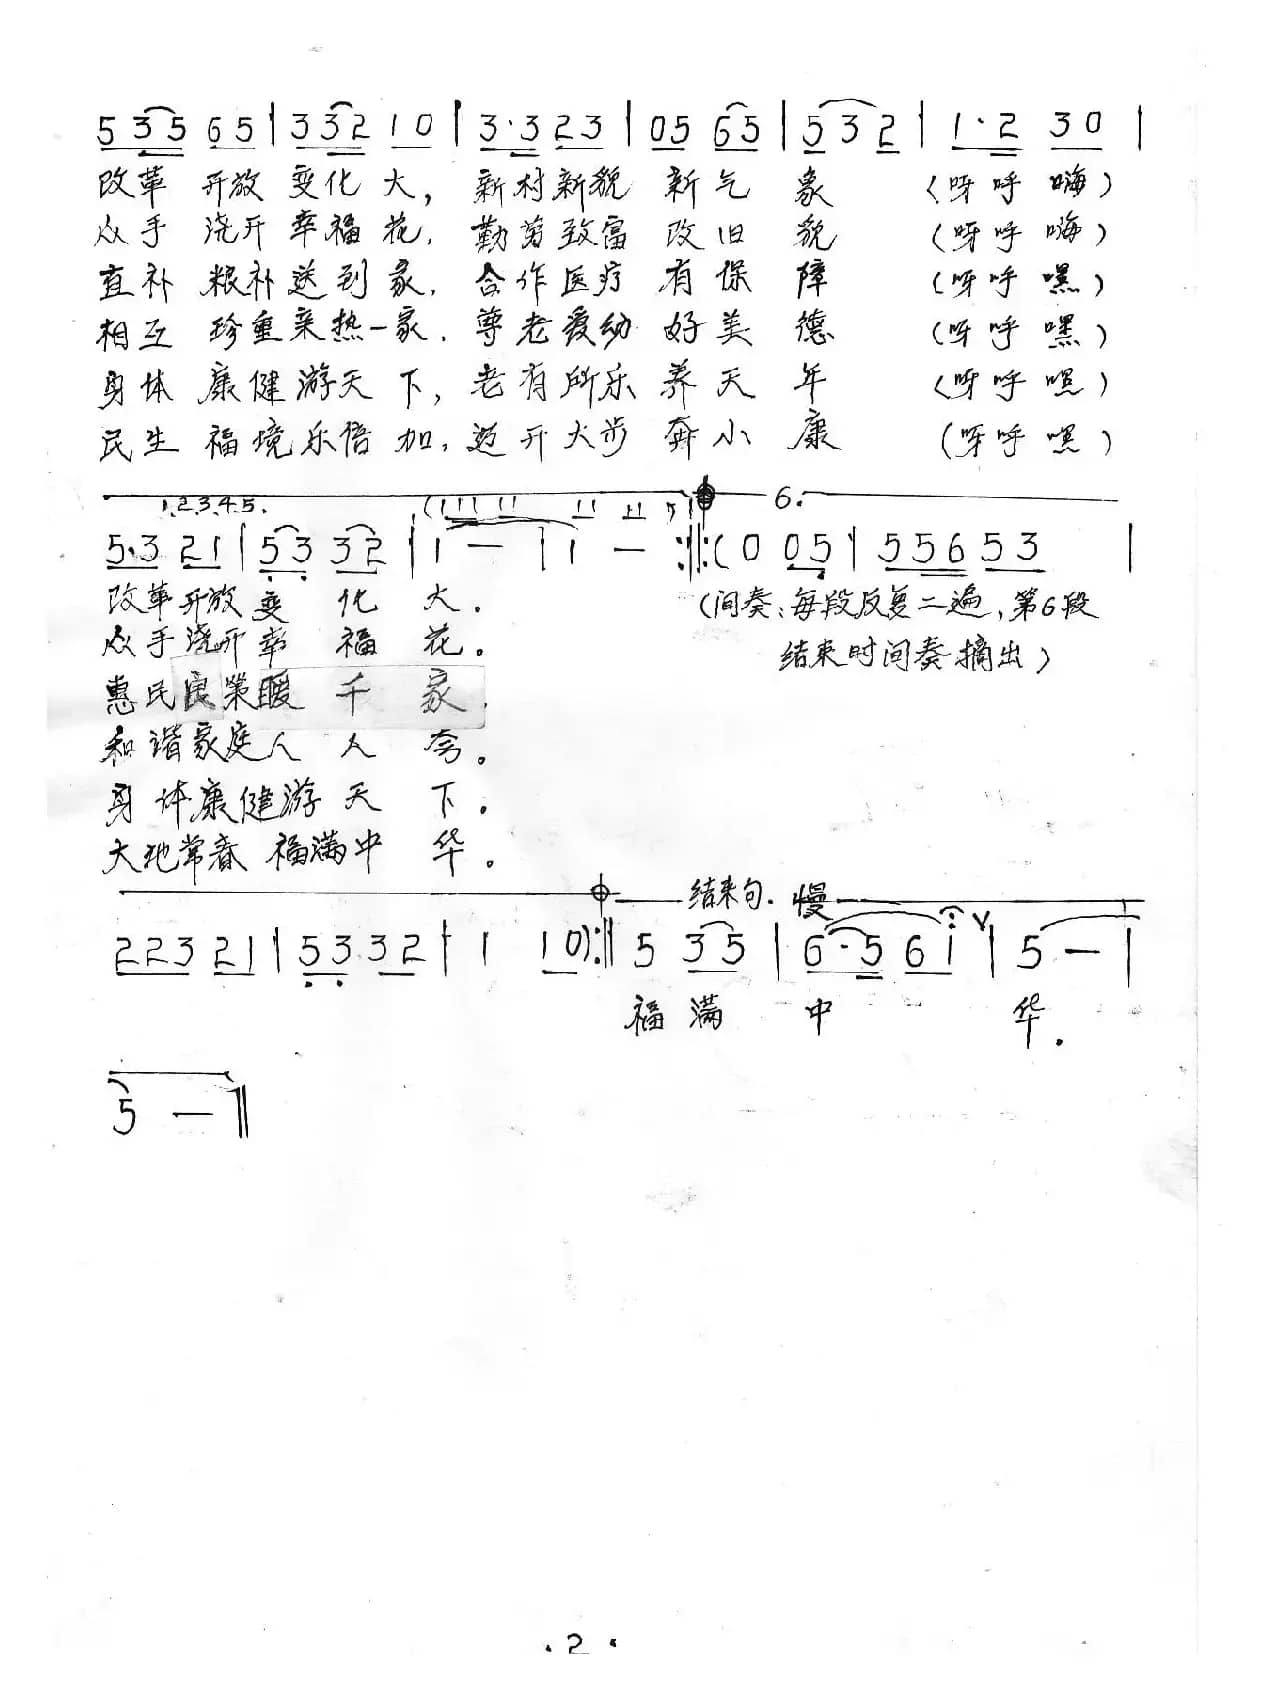 5 3 5 6 5 | 3 3 2 1 0 | 3·3 2 3 | 0 5 6 5 | 5 3 2 | 1·2 3 0 |
改革 开放 变化 大, 新村新貌 新气 象 (呀呼 嗨)
众手 浇开 幸福花, 勤劳致富 改旧 貌 (呀呼 嗨)
直补 粮补送到家, 合作医疗 有保 障 (呀呼 嘿)
相互 珍重亲热一家, 尊老爱幼 好美 德 (呀呼 嘿)
身体 康健游天下, 老有所乐 养天 年 (呀呼 嘿)
民生 福境乐倍加, 迈开大步 奔小 康 (呀呼 嘿)
1.2.3.4.5. 6.
5·3 2 1 | 5 3 3 2 | 1 — | 1 — :‖: (0 0 5 | 5 5 6 5 3 |
改革开放变 化 大.
众手浇开幸 福 花.
惠民良策暖 千 家.
和谐家庭人 人 夸.
身体康健游 天 下.
大地常春福满中 华.
(间奏:每段反复二遍,第6段
结束时间奏摘出)
结束句. 慢
2 2 3 2 1 | 5 3 3 2 | 1 1 0) :‖ 5 3 5 | 6·5 6 i | 5 — |
福 满 中 华.
5 — ‖
·2·